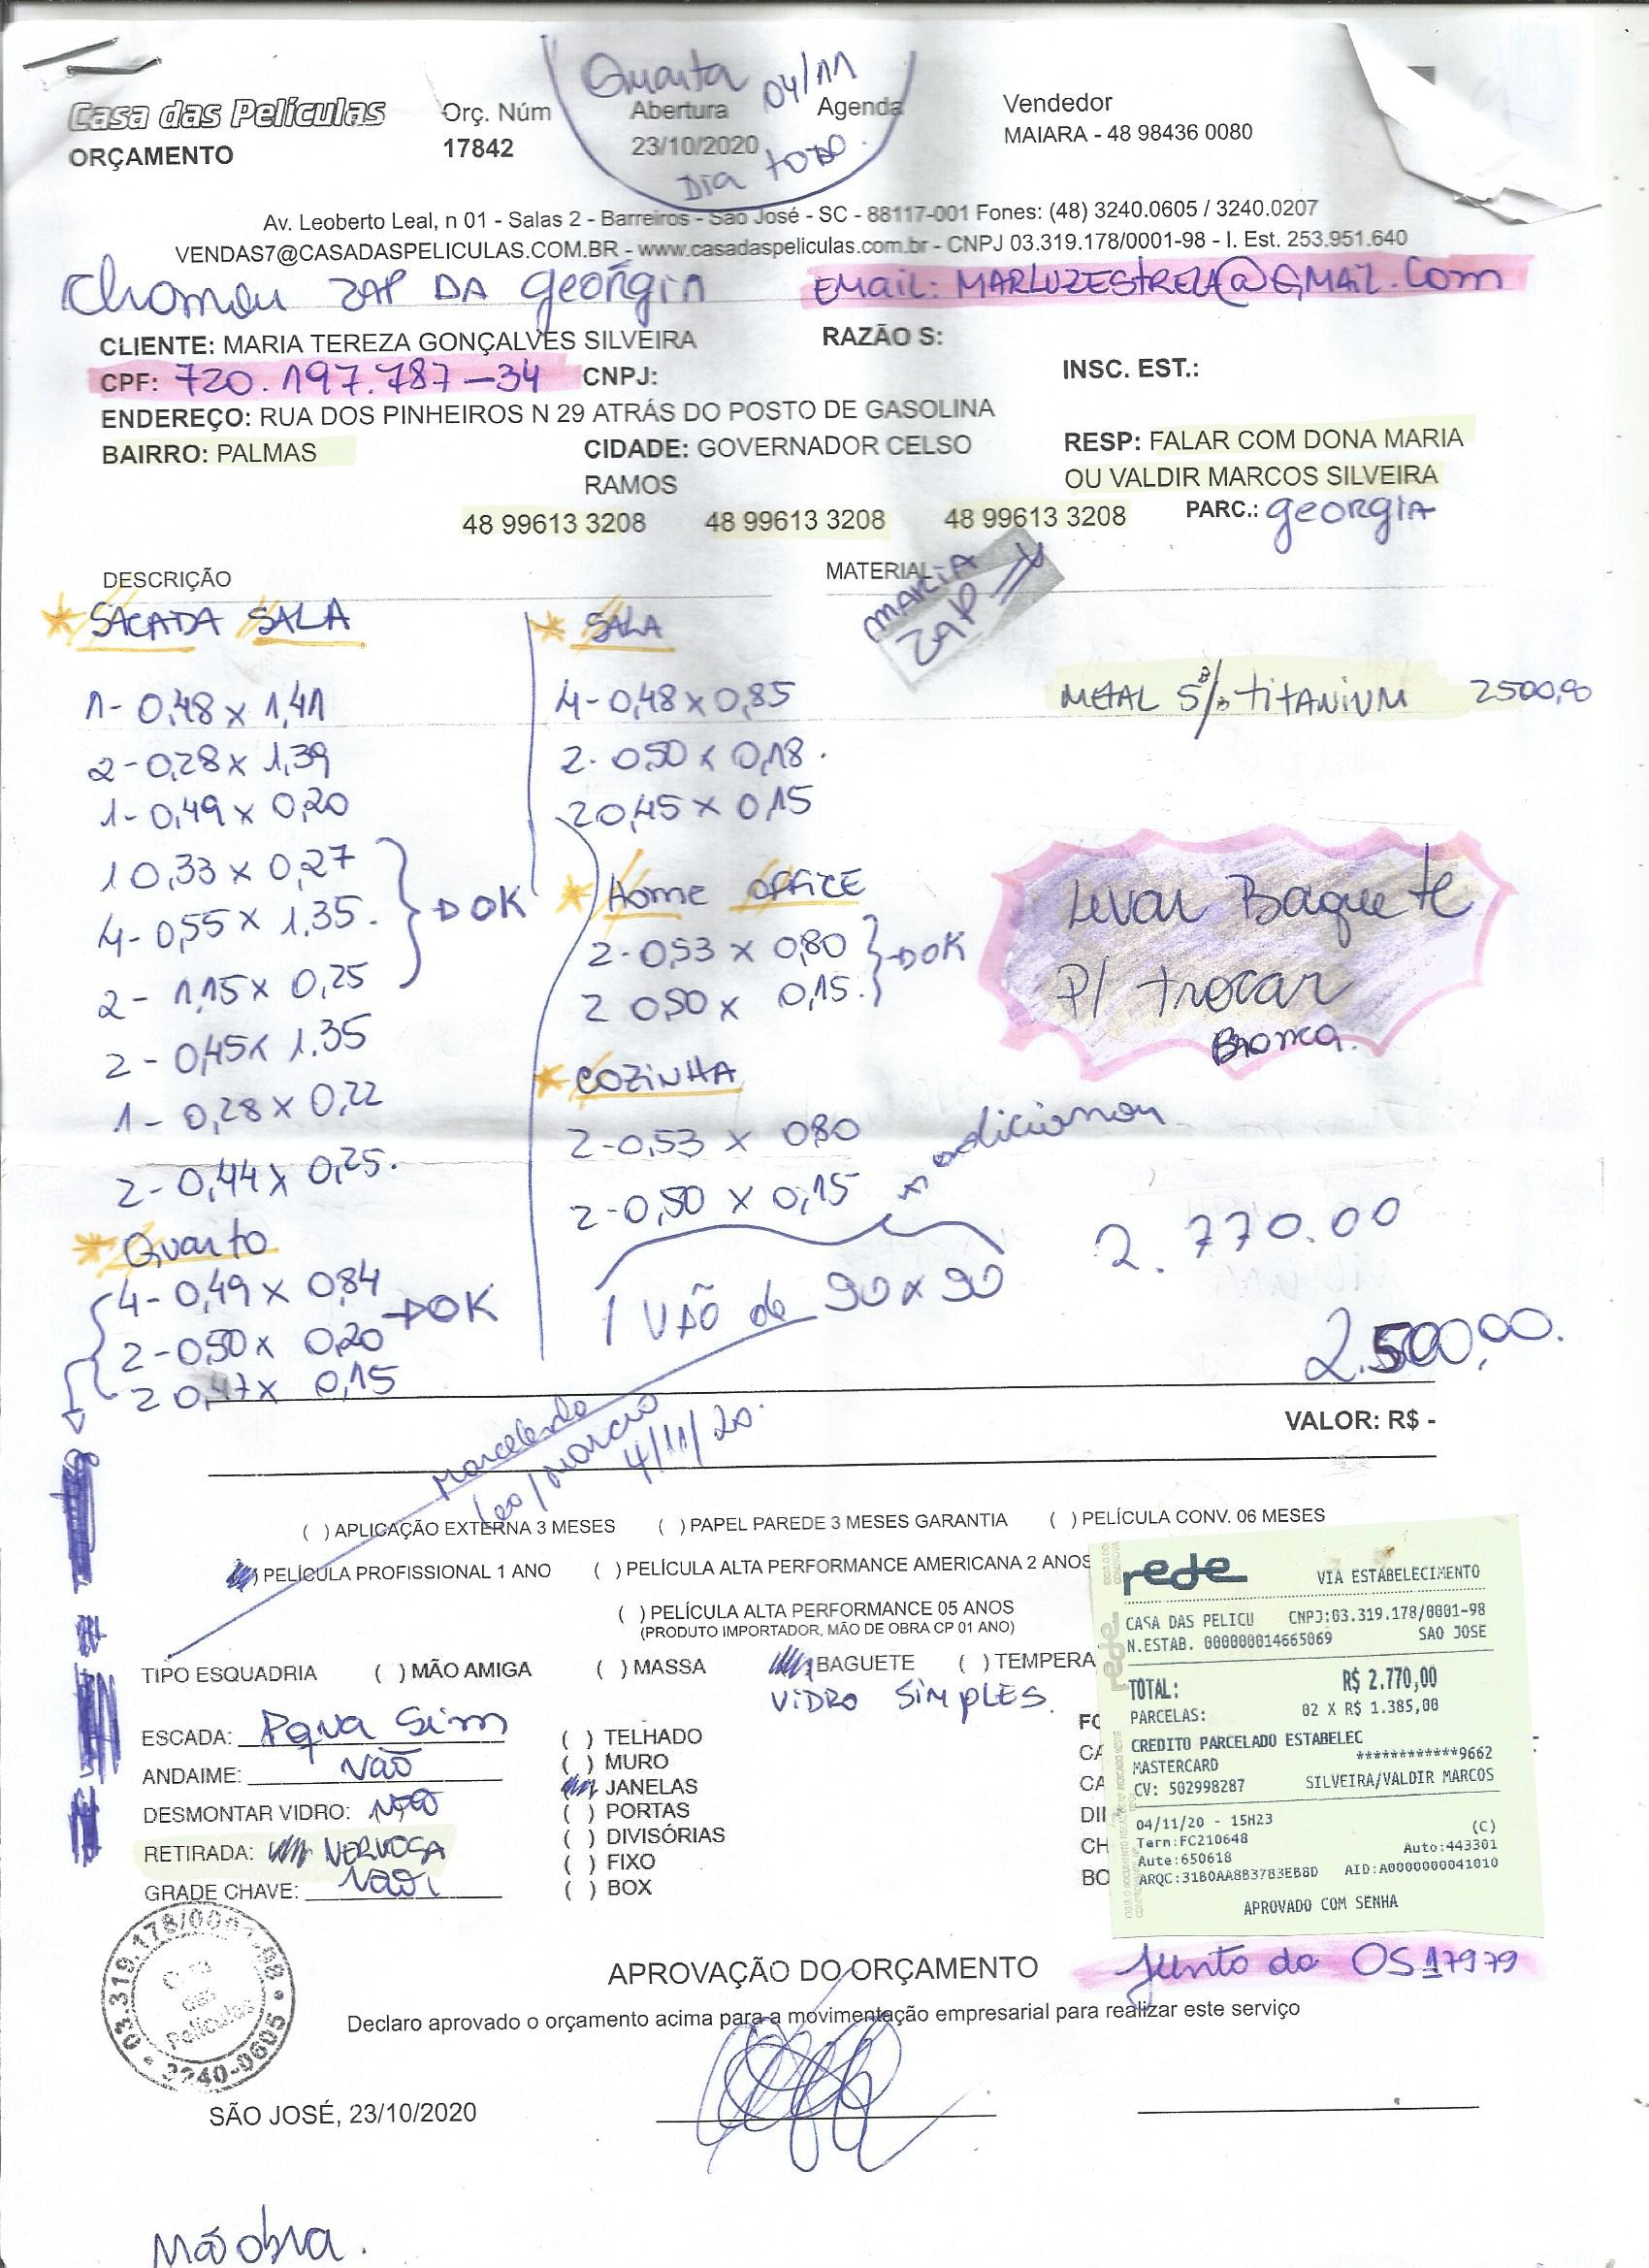 Quarta 04/11
Casa das Películas Orç. Núm Abertura Agenda Vendedor
ORÇAMENTO 17842 23/10/2020 MAIARA - 48 98436 0080
Dia TODO.
Av. Leoberto Leal, n 01 - Salas 2 - Barreiros - São José - SC - 88117-001 Fones: (48) 3240.0605 / 3240.0207
VENDAS7@CASADASPELICULAS.COM.BR - www.casadaspeliculas.com.br - CNPJ 03.319.178/0001-98 - I. Est. 253.951.640
Chamou ZAP DA geórgia EMAil: MARLUZESTRELA@GMAIL.COM
CLIENTE: MARIA TEREZA GONÇALVES SILVEIRA RAZÃO S:
CPF: 720.197.787-34 CNPJ: INSC. EST.:
ENDEREÇO: RUA DOS PINHEIROS N 29 ATRÁS DO POSTO DE GASOLINA
BAIRRO: PALMAS CIDADE: GOVERNADOR CELSO RESP: FALAR COM DONA MARIA
RAMOS OU VALDIR MARCOS SILVEIRA
48 99613 3208 48 99613 3208 48 99613 3208 PARC.: georgia
DESCRIÇÃO MATERIAL
MARIA
ZAP
* SACADA SALA
1- 0,48 x 1,41
2- 0,28 x 1,39
1- 0,49 x 0,20
1 0,33 x 0,27
4- 0,55 x 1,35.
2 - 1,15 x 0,25
OK
2 - 0,45 x 1,35
1 - 0,28 x 0,22
2 - 0,44 x 0,25.
* Quarto
4- 0,49 x 0,84
2- 0,50 x 0,20
2 0,47 x 0,15
OK
* SALA
4- 0,48 x 0,85
2- 0,50 x 0,18.
2 0,45 x 0,15
* Home OFFICE
2- 0,53 x 0,80
2 0,50 x 0,15.
OK
* COZINHA
2- 0,53 x 0,80
2- 0,50 x 0,15
adicionou
1 VÃO de 90 x 90
METAL 5% TITANIUM 2500,00
Levar Baquete
P/ trocar
Branca.
2.770.00
2.500,00.
VALOR: R$ -
Marcelendo
Leo/Marcio
4/11/20.
( ) APLICAÇÃO EXTERNA 3 MESES ( ) PAPEL PAREDE 3 MESES GARANTIA ( ) PELÍCULA CONV. 06 MESES
( ) PELÍCULA PROFISSIONAL 1 ANO ( ) PELÍCULA ALTA PERFORMANCE AMERICANA 2 ANOS
( ) PELÍCULA ALTA PERFORMANCE 05 ANOS
(PRODUTO IMPORTADOR, MÃO DE OBRA CP 01 ANO)
TIPO ESQUADRIA ( ) MÃO AMIGA ( ) MASSA BAGUETE ( ) TEMPERA
VIDRO SIMPLES.
ESCADA: Pqna Sim
ANDAIME: NÃO
DESMONTAR VIDRO: NÃO
RETIRADA: NERVOSA
GRADE CHAVE: NÃO
( ) TELHADO
( ) MURO
JANELAS
( ) PORTAS
( ) DIVISÓRIAS
( ) FIXO
( ) BOX
FO
CA
CA
DII
CH
BO
rede VIA ESTABELECIMENTO
CASA DAS PELICU CNPJ:03.319.178/0001-98
N.ESTAB. 000000014665069 SAO JOSE
TOTAL: R$ 2.770,00
PARCELAS: 02 X R$ 1.385,00
CREDITO PARCELADO ESTABELEC
MASTERCARD ************9662
CV: 502998287 SILVEIRA/VALDIR MARCOS
04/11/20 - 15H23 (C)
Term:FC210648 Auto:443301
Aute:650618
ARQC:31B0AA8B3783EB8D AID:A0000000041010
APROVADO COM SENHA
Junto da OS 17979
03.319.178/0001-98 • 3240-0605 •
Casa das Películas
APROVAÇÃO DO ORÇAMENTO
Declaro aprovado o orçamento acima para a movimentação empresarial para realizar este serviço
SÃO JOSÉ, 23/10/2020
Mãobra.